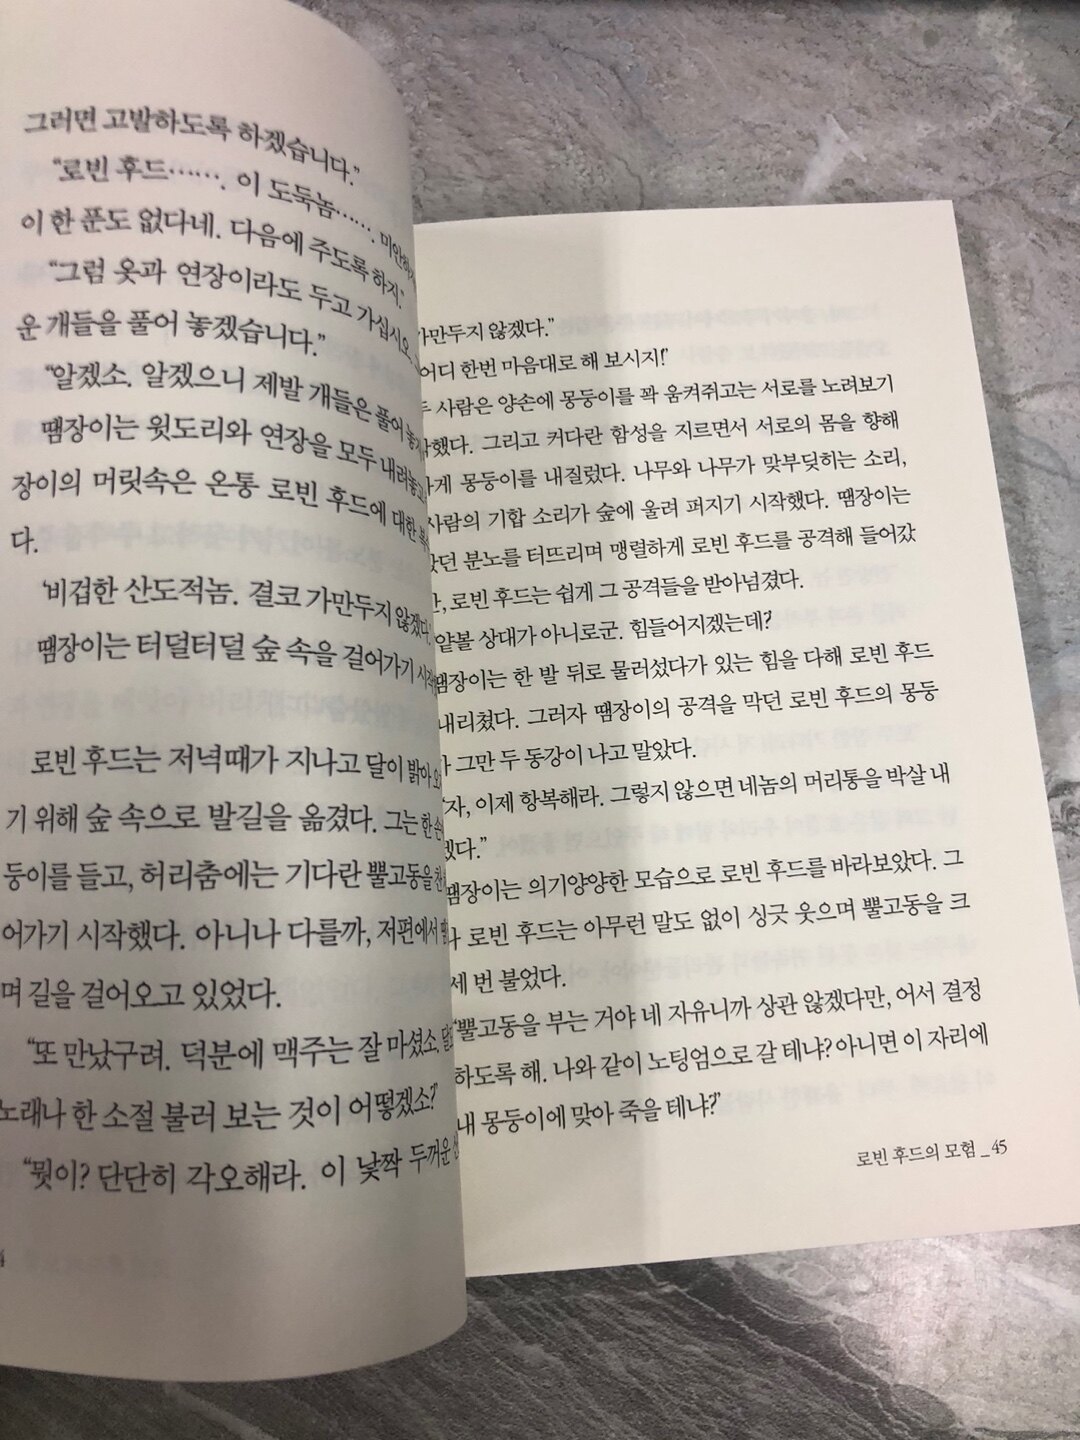 그러면 고발하도록 하겠습니다.”
“로빈 후드……. 이 도둑놈……. 미안하
이 한 푼도 없다네. 다음에 주도록 하지.”
“그럼 옷과 연장이라도 두고 가십시오.
운 개들을 풀어 놓겠습니다.”
“알겠소. 알겠으니 제발 개들은 풀어
땜장이는 윗도리와 연장을 모두 내려놓고
장이의 머릿속은 온통 로빈 후드에 대한
다.
‘비겁한 산도적놈. 결코 가만두지 않겠다.
땜장이는 터덜터덜 숲 속을 걸어가기 시작
로빈 후드는 저녁때가 지나고 달이 밝아
기 위해 숲 속으로 발길을 옮겼다. 그는 한 손
둥이를 들고, 허리춤에는 기다란 뿔고동을
어가기 시작했다. 아니나 다를까, 저편에서
며 길을 걸어오고 있었다.
“또 만났구려. 덕분에 맥주는 잘 마셨소.
노래나 한 소절 불러 보는 것이 어떻겠소?”
“뭣이? 단단히 각오해라. 이 낯짝 두꺼운
가만두지 않겠다.”
어디 한번 마음대로 해 보시지!”
사람은 양손에 몽둥이를 꽉 움켜쥐고는 서로를 노려보기
했다. 그리고 커다란 함성을 지르면서 서로의 몸을 향해
하게 몽둥이를 내질렀다. 나무와 나무가 맞부딪히는 소리,
사람의 기합 소리가 숲에 울려 퍼지기 시작했다. 땜장이는
았던 분노를 터뜨리며 맹렬하게 로빈 후드를 공격해 들어갔
로빈 후드는 쉽게 그 공격들을 받아넘겼다.
얕볼 상대가 아니로군. 힘들어지겠는데?
땜장이는 한 발 뒤로 물러섰다가 있는 힘을 다해 로빈 후드
내리쳤다. 그러자 땜장이의 공격을 막던 로빈 후드의 몽둥
가 그만 두 동강이 나고 말았다.
“자, 이제 항복해라. 그렇지 않으면 네놈의 머리통을 박살 내
겠다.”
땜장이는 의기양양한 모습으로 로빈 후드를 바라보았다. 그
나 로빈 후드는 아무런 말도 없이 싱긋 웃으며 뿔고동을 크
세 번 불었다.
“뿔고동을 부는 거야 네 자유니까 상관 않겠다만, 어서 결정
하도록 해. 나와 같이 노팅엄으로 갈 테냐? 아니면 이 자리에
내 몽둥이에 맞아 죽을 테냐?”
로빈 후드의 모험 _ 45